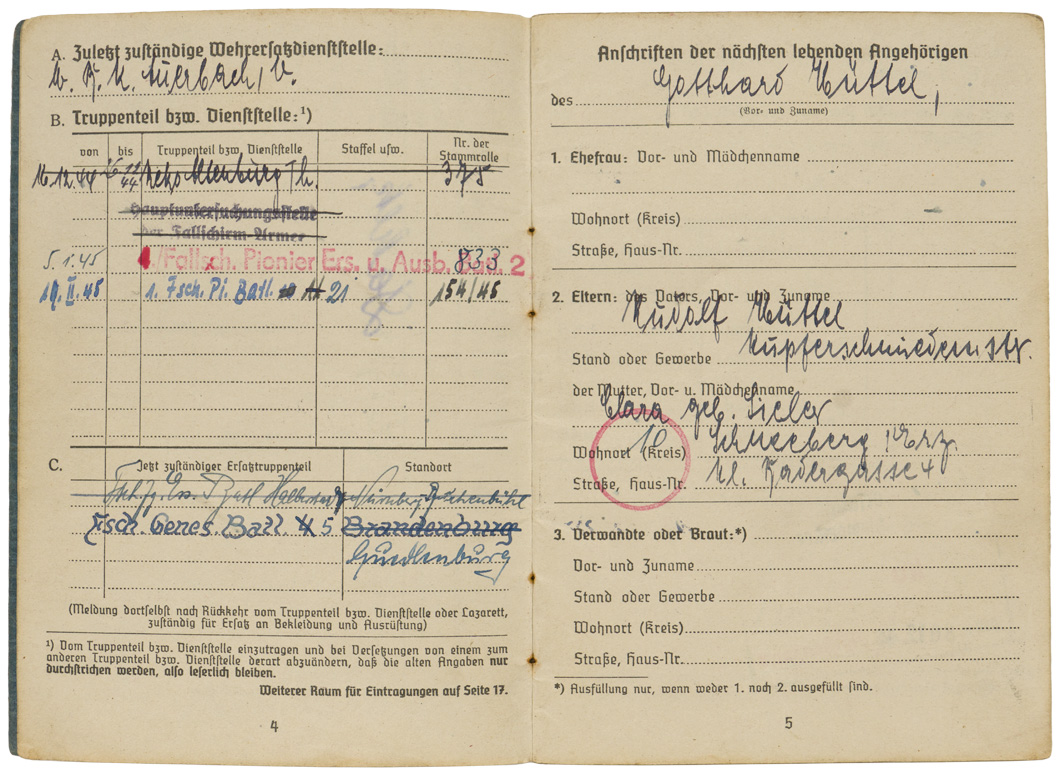 A. Zuletzt zuständige Wehrersatzdienststelle:
W. B. K. Auerbach, V.
B. Truppenteil bzw. Dienststelle:¹)
von bis Truppenteil bzw. Dienststelle Staffel usw. Nr. der Stammrolle
16.12.44 Altenburg Th. 375
Hauptuntersuchungsstelle
der Fallschirm-Armee
5.1.45 /Fallsch. Pionier Ers. u. Ausb. Batl. 2 833
19.II.45 1. Fsch. Pi. Batl. 21 154/45
C. Jetzt zuständiger Ersatztruppenteil Standort
Halberstadt Nürnberg Buchenbühl
Fsch. Genes. Batl. 5 Brandenburg
Quedlenburg
(Meldung dortselbst nach Rückkehr vom Truppenteil bzw. Dienststelle oder Lazarett,
zuständig für Ersatz an Bekleidung und Ausrüstung)
¹) Vom Truppenteil bzw. Dienststelle einzutragen und bei Versetzungen von einem zum
anderen Truppenteil bzw. Dienststelle derart abzuändern, daß die alten Angaben nur
durchstrichen werden, also leserlich bleiben.
Weiterer Raum für Eintragungen auf Seite 17.
4
Anschriften der nächsten lebenden Angehörigen
des Gotthard Hüttel,
(Vor- und Zuname)
1. Ehefrau: Vor- und Mädchenname
Wohnort (Kreis)
Straße, Haus-Nr.
2. Eltern: des Vaters, Vor- und Zuname
Rudolf Hüttel
Stand oder Gewerbe Kupferschmiedemstr.
der Mutter, Vor- u. Mädchenname
Clara geb. Sieler
Wohnort (Kreis) Schneeberg, Erz.
Straße, Haus-Nr. Kl. Badergasse 4
3. Verwandte oder Braut:*)
Vor- und Zuname
Stand oder Gewerbe
Wohnort (Kreis)
Straße, Haus-Nr.
*) Ausfüllung nur, wenn weder 1. noch 2. ausgefüllt sind.
5